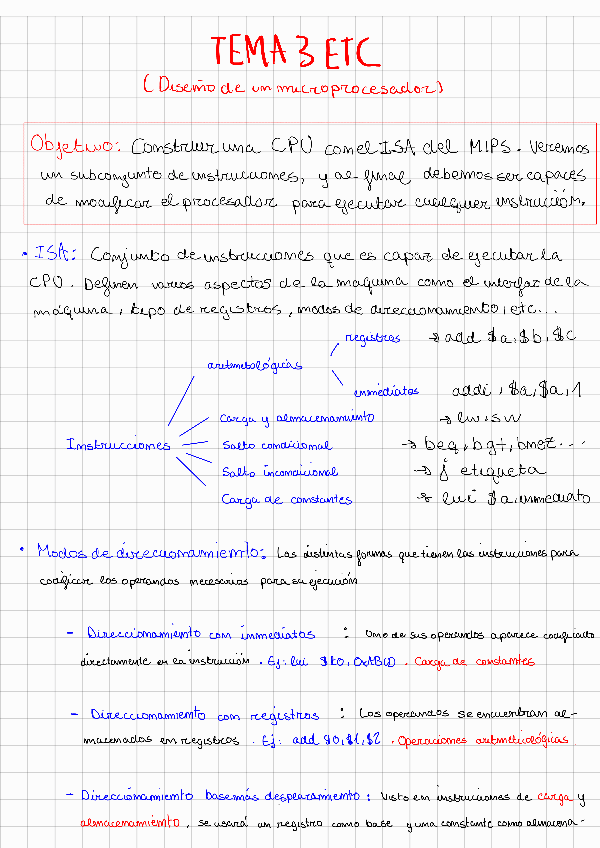 TEMA 3 ETC
(Diseño de un microprocesador)
Objetivo: Construir una CPU con el ISA del MIPS. Veremos
un subconjunto de instrucciones, y al final debemos ser capaces
de modificar el procesador para ejecutar cualquier instrucción.
• ISA: Conjunto de instrucciones que es capaz de ejecutar la
CPU. Definen varios aspectos de la maquina como el interfaz de la
máquina, tipo de registros, modos de direccionamiento, etc...
registros → add $a, $b, $c
aritmetológicas
inmediatos addi, $a, $a, 1
Carga y almacenamiento → lw, sw
Instrucciones
Salto condicional → beq, bgt, bnez...
Salto incondicional → j etiqueta
Carga de constantes → lui $a, inmediato
• Modos de direccionamiento: Las distintas formas que tienen las instrucciones para
codificar los operandos necesarios para su ejecución
- Direccionamiento con inmediatos : Uno de sus operandos aparece codificado
directamente en la instrucción. Ej: lui $t0, 0xABCD. Carga de constantes
- Direccionamiento con registros : Los operandos se encuentran al-
macenados en registros. Ej: add $0, $1, $2. Operaciones aritmeticológicas
- Direccionamiento base más desplazamiento: Visto en instrucciones de carga y
almacenamiento, se usará un registro como base y una constante como almacena-